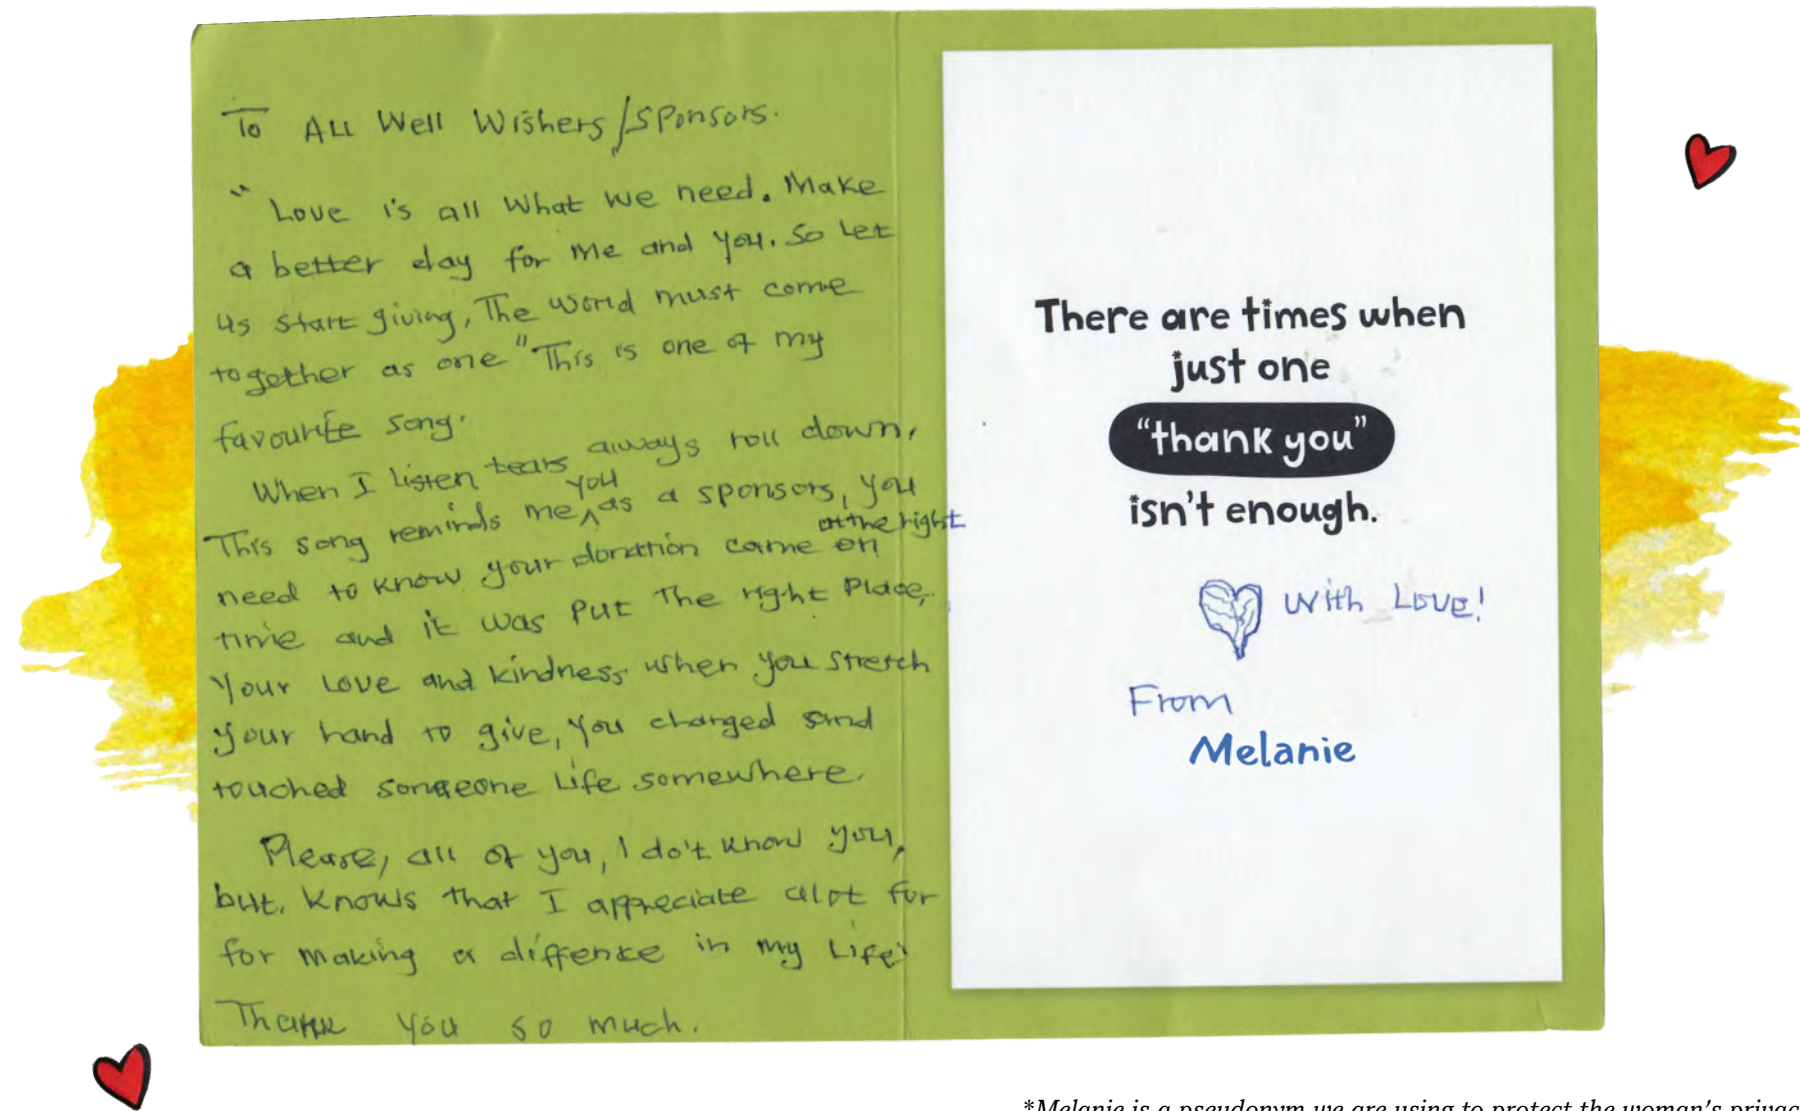 To All Well Wishers/Sponsors.
" Love is all what we need. Make
a better day for me and you. So Let
us start giving, The world must come
together as one" This is one of my
favourite song.
When I listen tears always roll down.
This song reminds me you as a sponsors, you
need to know your donation came on at the right
time and it was put The right Place,
Your Love and kindness when you stretch
your hand to give, you changed and
touched someone Life somewhere
Please, all of you, I do't know you,
but. knows that I appreciate alot for
for making a diffence in my Life
Thank you so much.
There are times when
just one
"thank you"
isn't enough.
With Love!
From
Melanie
*Melanie is a pseudonym we are using to protect the woman's